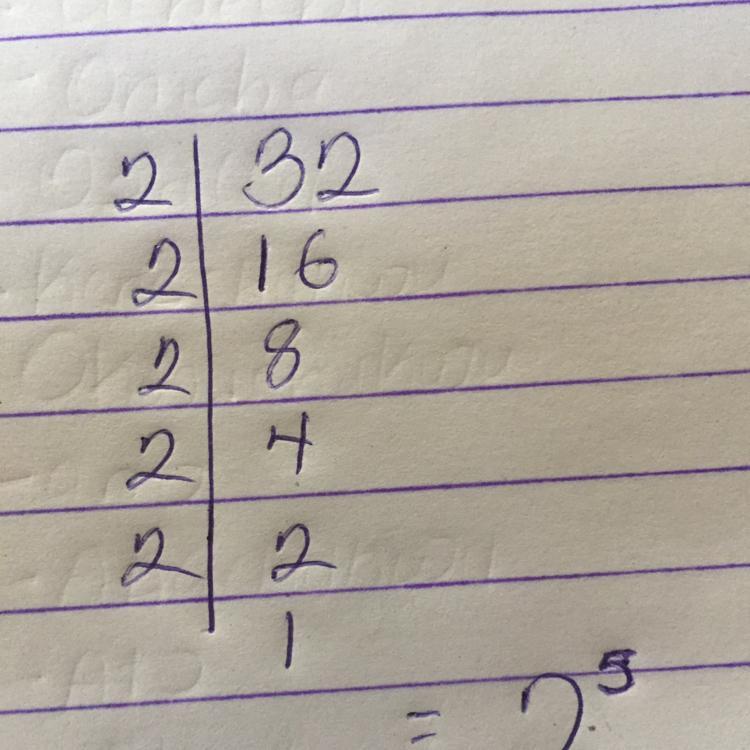 2 | 32
2 | 16
2 | 8
2 | 4
2 | 2
1
= 2⁵